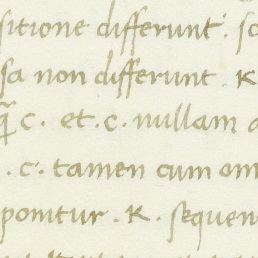 sitione differunt. sc
sa non differunt. K
q̄ c. et. c. nullam a
. c. tamen cum om
ponitur. K. sequen